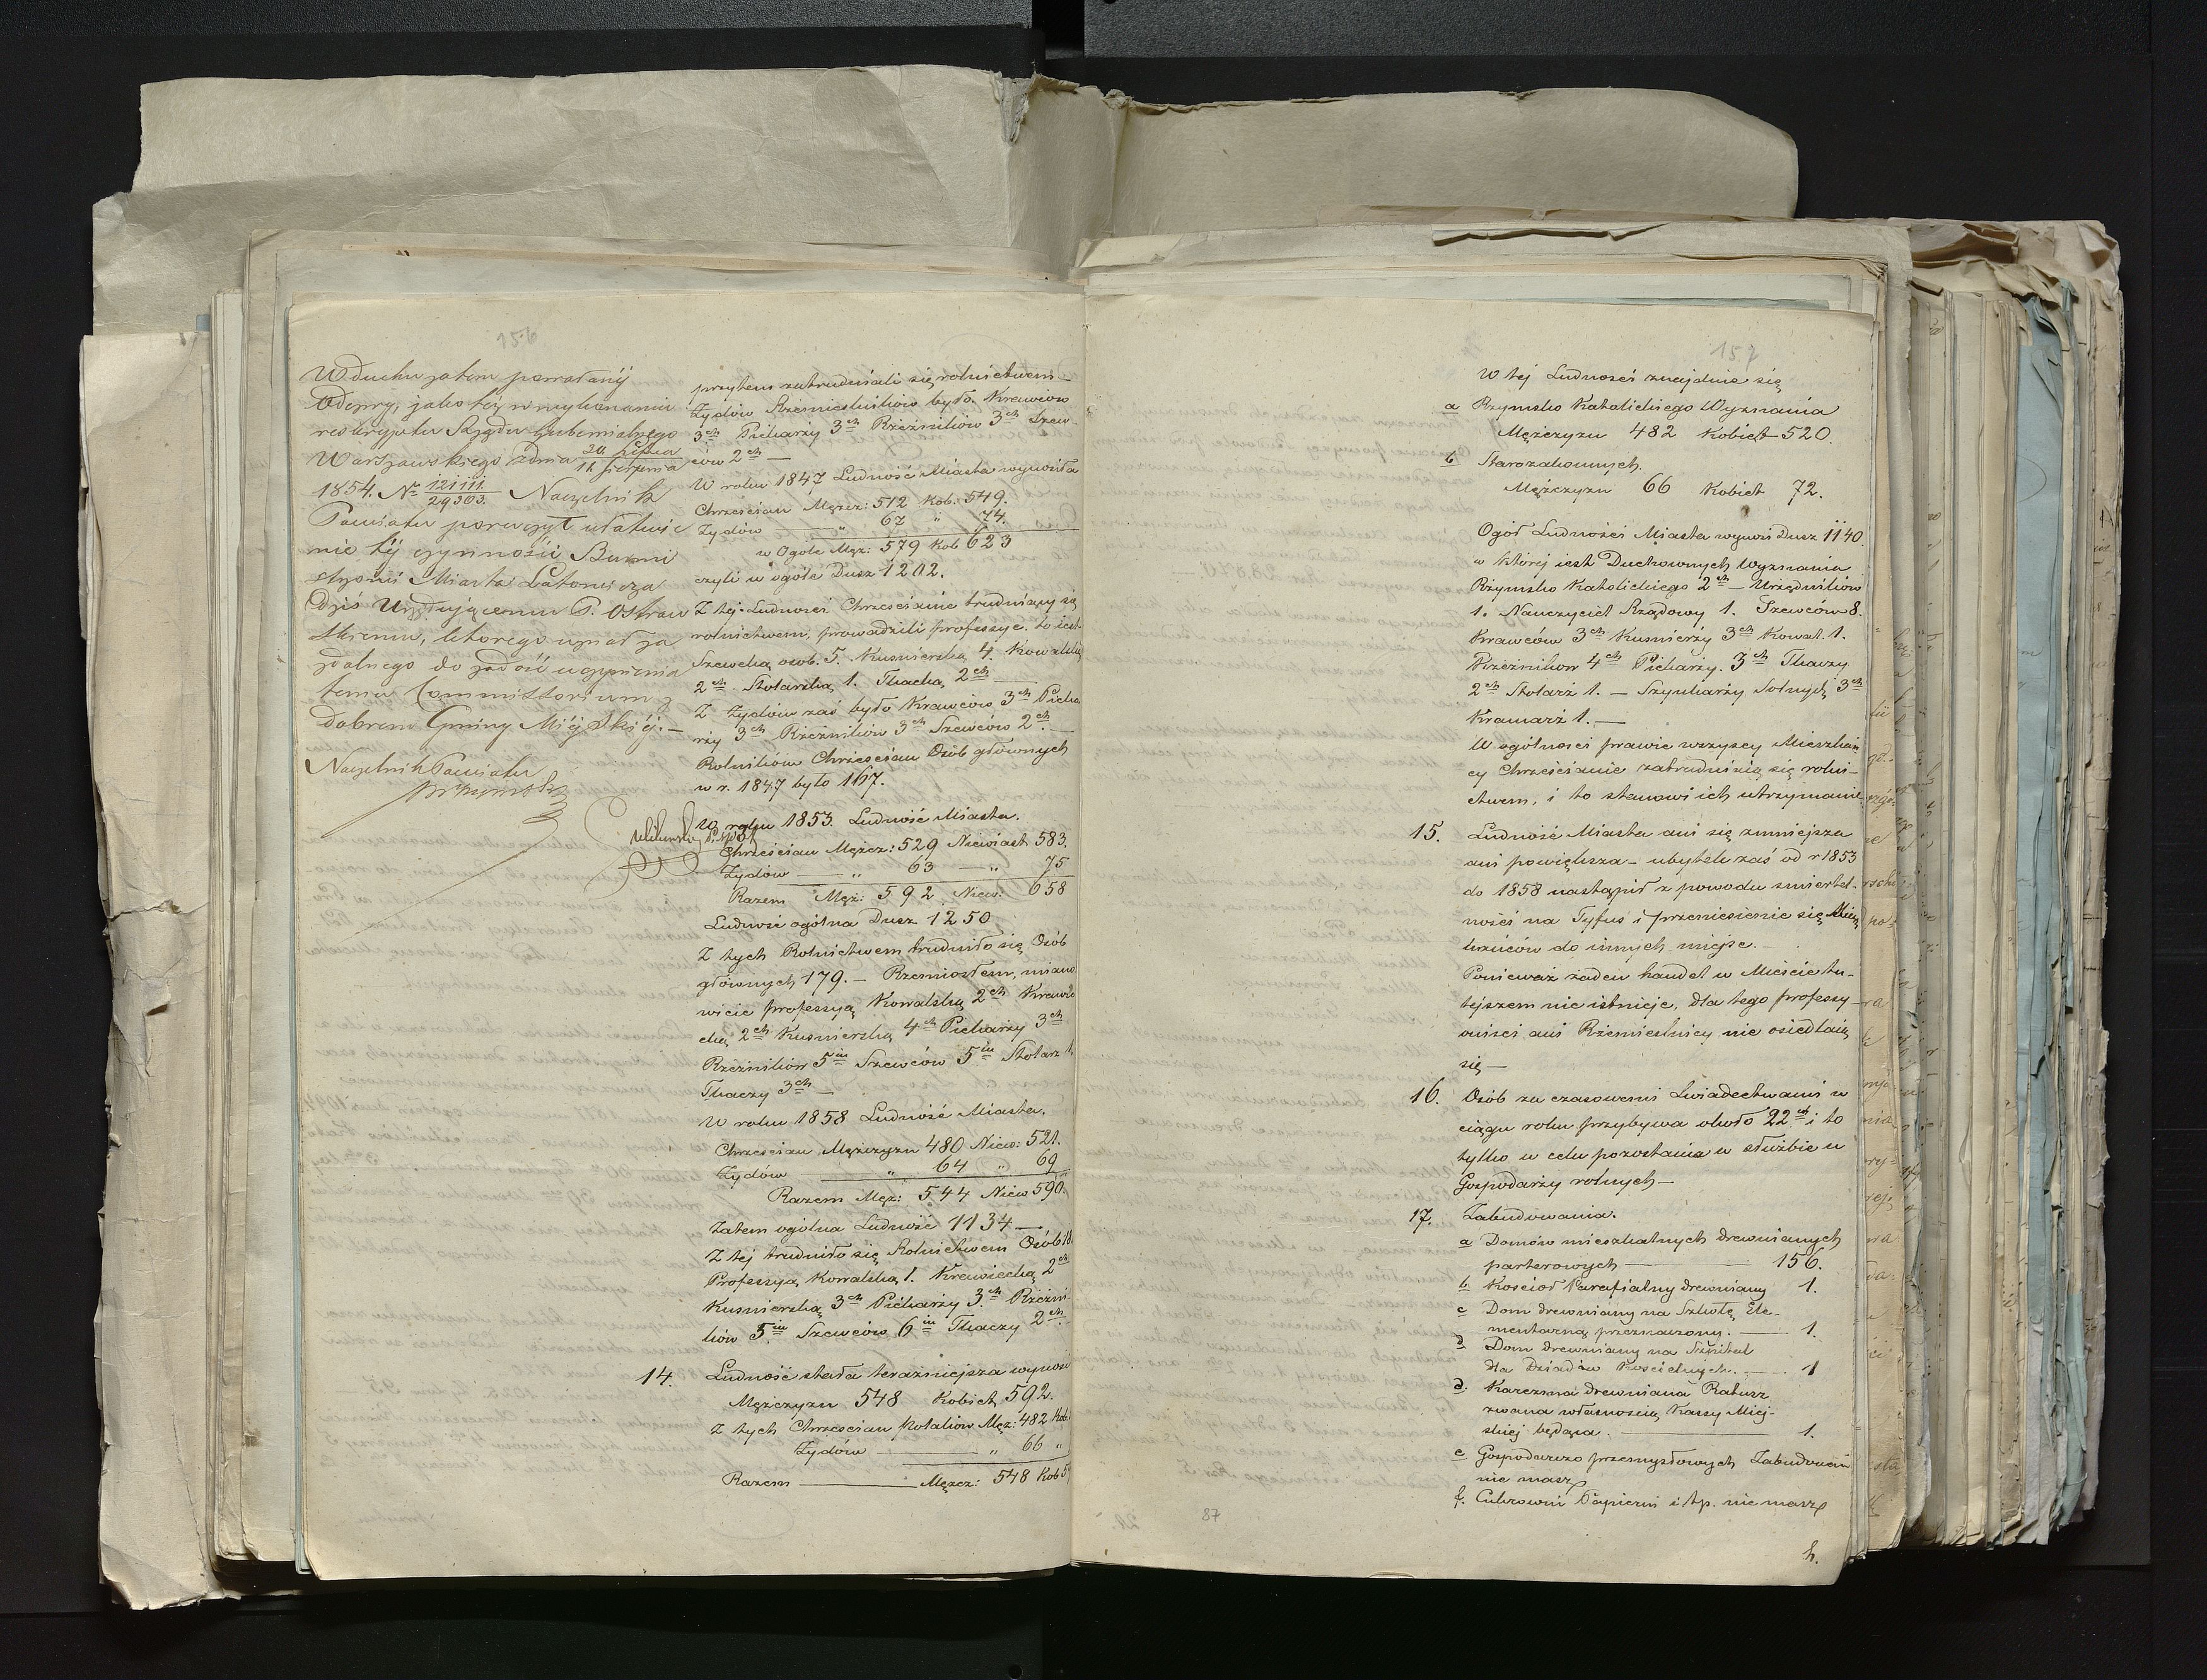 156
W duchu zatem powołanéj
Odezwy, jako téż w wykonaniu
reskryptu Rządu Gubernialnego
Warszawskiego z dnia 30 Lipca / 11 Sierpnia
1854. No 121111. / 29303. Naczelnik
Powiatu poruczył ułatwie
nie téj czynności Burmi
strzowi Miasta Latowicza
Dziś Urzędującemu P. Ostrow
skiemu, którego uznał za
zdolnego do zadość uczynienia
temu Commissorium z
dobrem Gminy Miéjskiéj. —
Naczelnik Powiatu
przytem zatrudniali się rolnictwem —
Żydów Rzemieślników było. Krawców
3ch Piekarzy 3ch Rzeźników 3ch Szew
ców 2ch —
W roku 1847 Ludność Miasta wynosiła
Chrześcian Męzcz: 512 Kob: 549.
Żydów — " 67 " 74.
w Ogóle Męz: 579 Kob 623
czyli w ogóle Dusz 1202.
Z tej Ludności Chrześcianie trudniący się
rolnictwem, prowadzili professye. to iest
Szewcką osób. 5. Kusnierską 4. Kowalską
2ch Stolarską 1. Tkacką 2ch —
Z Żydów zaś było Krawców 3ch Pieka
rzy 3ch Rzeźników 3ch Szewców 2ch. —
Rolników Chrześcian Osób głównych
w r. 1847 było 167.
W roku 1853. Ludność Miasta.
Chrześcian Męzcz: 529 Niewiast 583.
Żydów — " 63 — " 75
Razem Męz: 592 Niew: 658
Ludność ogólna Dusz 1250
Z tych Rolnictwem trudniło się Osób
głównych 179. — Rzemiosłem, miano
wicie professyą Kowalską 2ch Krawie
cką 2ch Kusnierską 4ch Piekarzy 3ch
Rzeźników 5iu Szewców 5iu Stolarz 1,
Tkaczy 3ch —
W roku 1858 Ludność Miasta.
Chrześcian Męzczyzn 480 Niew: 521.
Żydów " 64 " 69
Razem Męz: 544 Niew 590.
Zatem ogólna Ludność 1134 —
Z tej trudniło się Rolnictwem Osób
Professyą Kowalską 1. Krawiecką 2ch
Kusnierską 3ch Piekarzy 3ch Rzeźni
ków 5iu Szewców 6iu Tkaczy 2ch. —
14. Ludność stała teraźniejsza wynosi
Męzczyzn 548 Kobiet 592.
Z tych Chrześcian Katolików Męz: 482 Kob:
Żydów — " 66 "
Razem — Męzcz: 548 Kob 5
157
W tej Ludności znajduie się
a Rzymsko Katolickiego Wyznania
Męzczyzn 482 Kobiet 520.
b Starozakonnych.
Męzczyzn 66 Kobiet 72.
Ogół Ludności Miasta wynosi Dusz 1140.
w której iest Duchownych Wyznania
Rzymsko Katolickiego 2ch — Urzędników
1. Nauczyciel Rządowy 1. Szewców 8.
Krawców 3ch Kusnierzy 3ch Kowal. 1.
Rzeźników 4ch Piekarzy. 3ch Tkaczy
2ch Stolarz 1. — Szynkarzy Solnych 3ch
Kramarz 1. —
W ogólności prawie wszyscy Mieszkań
cy Chrześcianie zatrudniaią się rolni-
ctwem, i to stanowi ich utrzymanie
15. Ludność Miasta ani się zmniejsza
ani powiększa — ubytek zaś od r 1853
do 1858 nastąpił z powodu smiertel-
ności na Tyfus i przeniesienie się Miesz
kańców do innych miejsc. —
Ponieważ żaden handel w Mieście tu-
tejszem nie istnieje, dla tego professy-
oniści ani Rzemieślnicy nie osiedlaią
się —
16. Osób za czasowemi Świadectwami w
ciągu roku przybywa około 22ch i to
tylko w celu pozostania w służbie u
Gospodarzy rolnych —
17. Zabudowania.
a Domów mieszkalnych drewnianych
parterowych — 156.
b Kościoł Parafialny drewniany 1.
c Dom drewniany na Szkołę Ele-
mentarną przeznaczony. — 1.
d Dom drewniany na Szpital
dla Dziadów Kościelnych. — 1
d. Karczma drewniana Ratusz
zwana własnością Kassy Miej-
skiej będąca. — 1.
e Gospodarczo przemysłowych Zabudowań
nie masz
f. Cukrowni Papierni i t.p. nie masz
h.
87